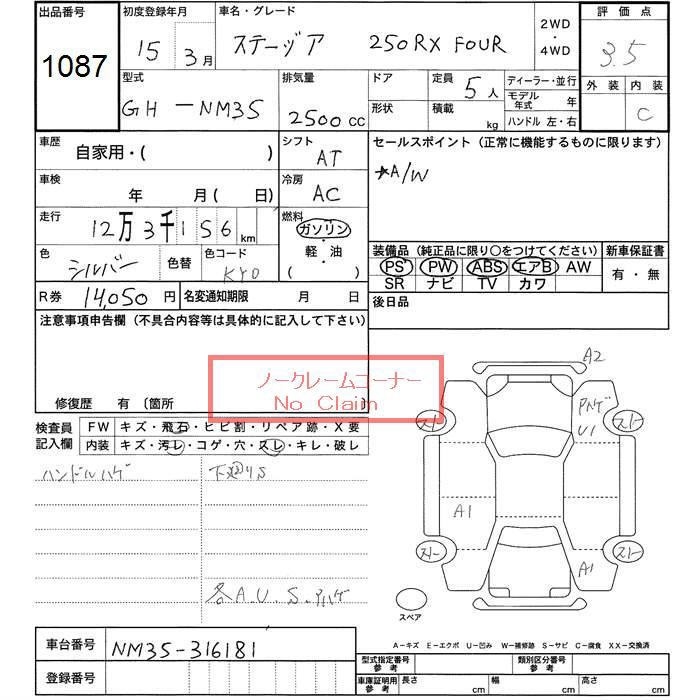 出品番号
1087
初度登録年月
15 3月
車名・グレード
ステージア 250RX FOUR
2WD
・
4WD
評価点
3.5
外装 内装
C
型式
GH-NM35
排気量
2500 cc
ドア
形状
定員 5人
積載 kg
ディーラー・並行
モデル年式 年
ハンドル 左・右
車歴
自家用・( )
シフト
AT
セールスポイント(正常に機能するものに限ります)
*A/W
車検
年 月( 日)
冷房
AC
走行
12万3千156 km
燃料
ガソリン
・
軽・油
( )
色
シルバー
色替
色コード
KY0
装備品(純正品に限り〇をつけてください)
PS PW ABS エアB AW
SR ナビ TV カワ
新車保証書
有・無
R券 14,050円
名変通知期限 月 日
後日品
注意事項申告欄(不具合内容等は具体的に記入して下さい)
ノークレームコーナー
No Claim
修復歴 有 〔箇所
検査員
記入欄
FW キズ・飛石・ヒビ割・リペア跡・X要
内装 キズ・汚レ・コゲ・穴・スレ・キレ・破レ
ハンドルハゲ
下廻りS
各A.U.S.Pハゲ
A2
Pハゲ
U1
スト
スト
A1
A1
スト
スト
スペア
A-キズ E-エクボ U-凹み W-補修跡 S-サビ C-腐食 XX-交換済
車台番号 NM35-316181
登録番号
型式指定番号
参考
類別区分番号
参考
車庫証明用
参考
長さ cm
幅 cm
高さ cm